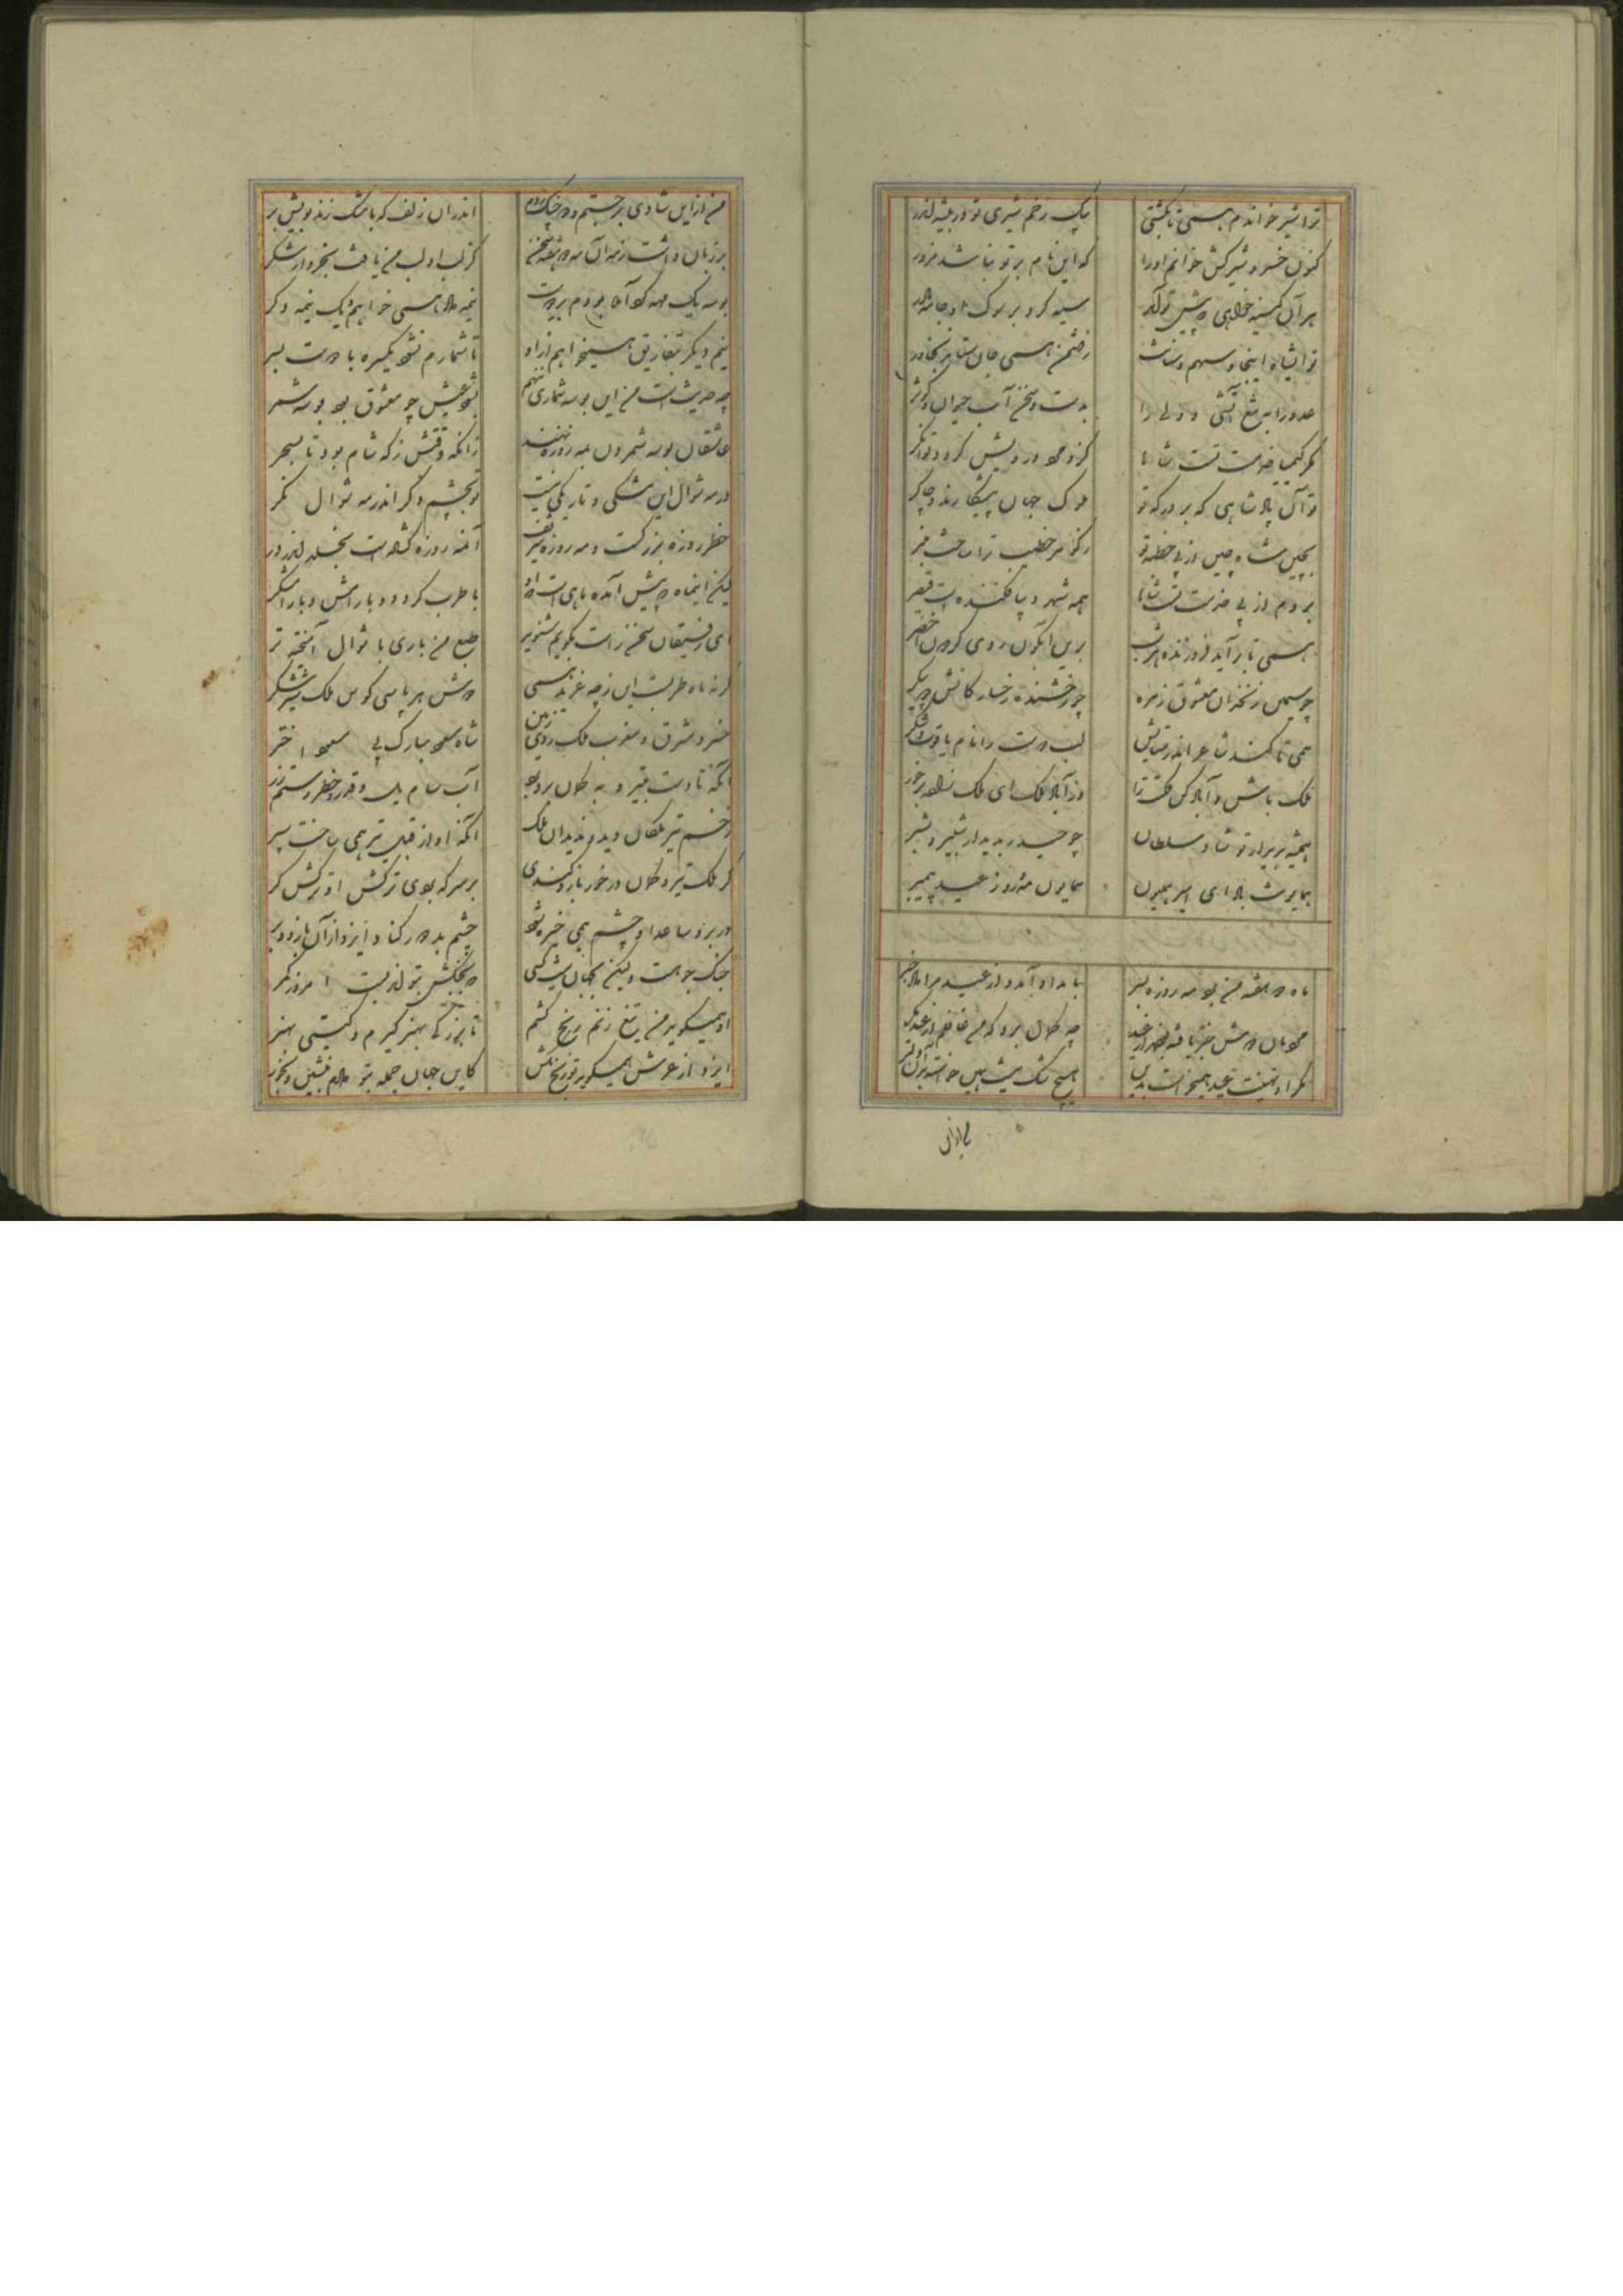 ترا شیر خواندم همی تا بکشتی بیک زخم شیری تو در بیشه اندر
کنون خسرو شیرکش خوانم اورا که این نام بر تو نباشد مزور
هر آن کینه خواهی که پیش تو آید سیه کرد بر سوک او جامه مادر
ترا شاه اینجا و سهم و سنانت ز دشمن همی جان ستاند بخاور
عدو را به تیغ آتشی و ولی را بدست و سخن آب حیوان و کوثر
مگر کیمیا خدمت تست شاها کزو مرد درویش گردد توانگر
تو آن پادشاهی که بر درگه تو ملوک جهان پیشکارند و چاکر
بچین شاه چین از پی خطبه تو نکو مر خطیب ترا ساخت منبر
بروم از پی خدمت تست شاها همه شهر دیبا فکنده است قیصر
همی تا برآید فروزنده هر شب برین آبگون روی گردون اختر
چو سیمین زنخدان معشوق زهره چو رخشنده رخسار گانش دو پیکر
همی تا کند شاعر اندر ستایش لب دوست را نام یاقوت و شکر
ملک باش و آباد کن مملکت را وز آباد ملک ای ملک زاده برخور
همیشه بدیدار تو شاد سلطان چو حیدر بدیدار شبیر و شبر
همایونت باد ای امیر همایون همایون مه روز عید پیمبر
ماه دو هفته من برد مه روزه بسر بامداد آمد و از عید مرا داد خبر
مگر او تهنیت عید همیخواست بدین
من ازین شادی برجستم و در چنگ زدم اندران زلف که با مشک زند بویش بر
بر زبان داشت ز مه آن مه دو هفته سخن کز لب او لب من یافت بخروار شکر
بوسه یک مهه گرد آمده بودم بر دوست نیمه داد همی خواهم یک نیمه دگر
نیم دیگر بتفاریق همیخواهم ازو تا شمارم نشود یکسره با دوست بسر
چه حدیث است من این بوسه شماری بنهم بشود عیش چو معشوق بود بوسه شمر
عاشقان بوسه شمردن بمه روزه نهند زانکه وقتش ز گه شام بود تا بسحر
در مه شوال این تنگی و تاریکی نیست تو بچشم دگر اندر مه شوال نگر
خطر روزه بزرگست و مه روزه شریف آمنه روزه گشاده است بخلد اندر در
لیکن اینماه که پیش آمده ماهی است که او با طرب گردد و با رامش و با رامشگر
ای رفیقان سخن راست بگویم شنوید طبع من باری با شوال آمخته تر
گر نه ماه طربست این ز چه غرید همی دوش هر پاسی کوس ملک شیر شکر
خسرو مشرق و مغرب ملک روی زمین شاه مسعود مبارک پی مسعود اختر
آنکه تا دست بتیر و به کمان برده بود آب سام یل و قدر و خطر رستم زر
زخم تیر ملکان دید و ندید آن ملک آنکه او از قبل تیر همی ساخت سپر
گر ملک تیر و کمان در خور بازو کندی بر سر که بودی ترکش او ترکش گر
در بر و ساعد او چشم همی خیره شود چشم بد دور کناد ایزد از آن بازو و بر
او همیگوید من تیغ زنم رنج کشم تا بزرگی بهنر گیرم و گیتی بهنر
ایزد از عرش همیگوید تو رنج مکش کاین جهان جمله بتو دادم بنشین و بخور